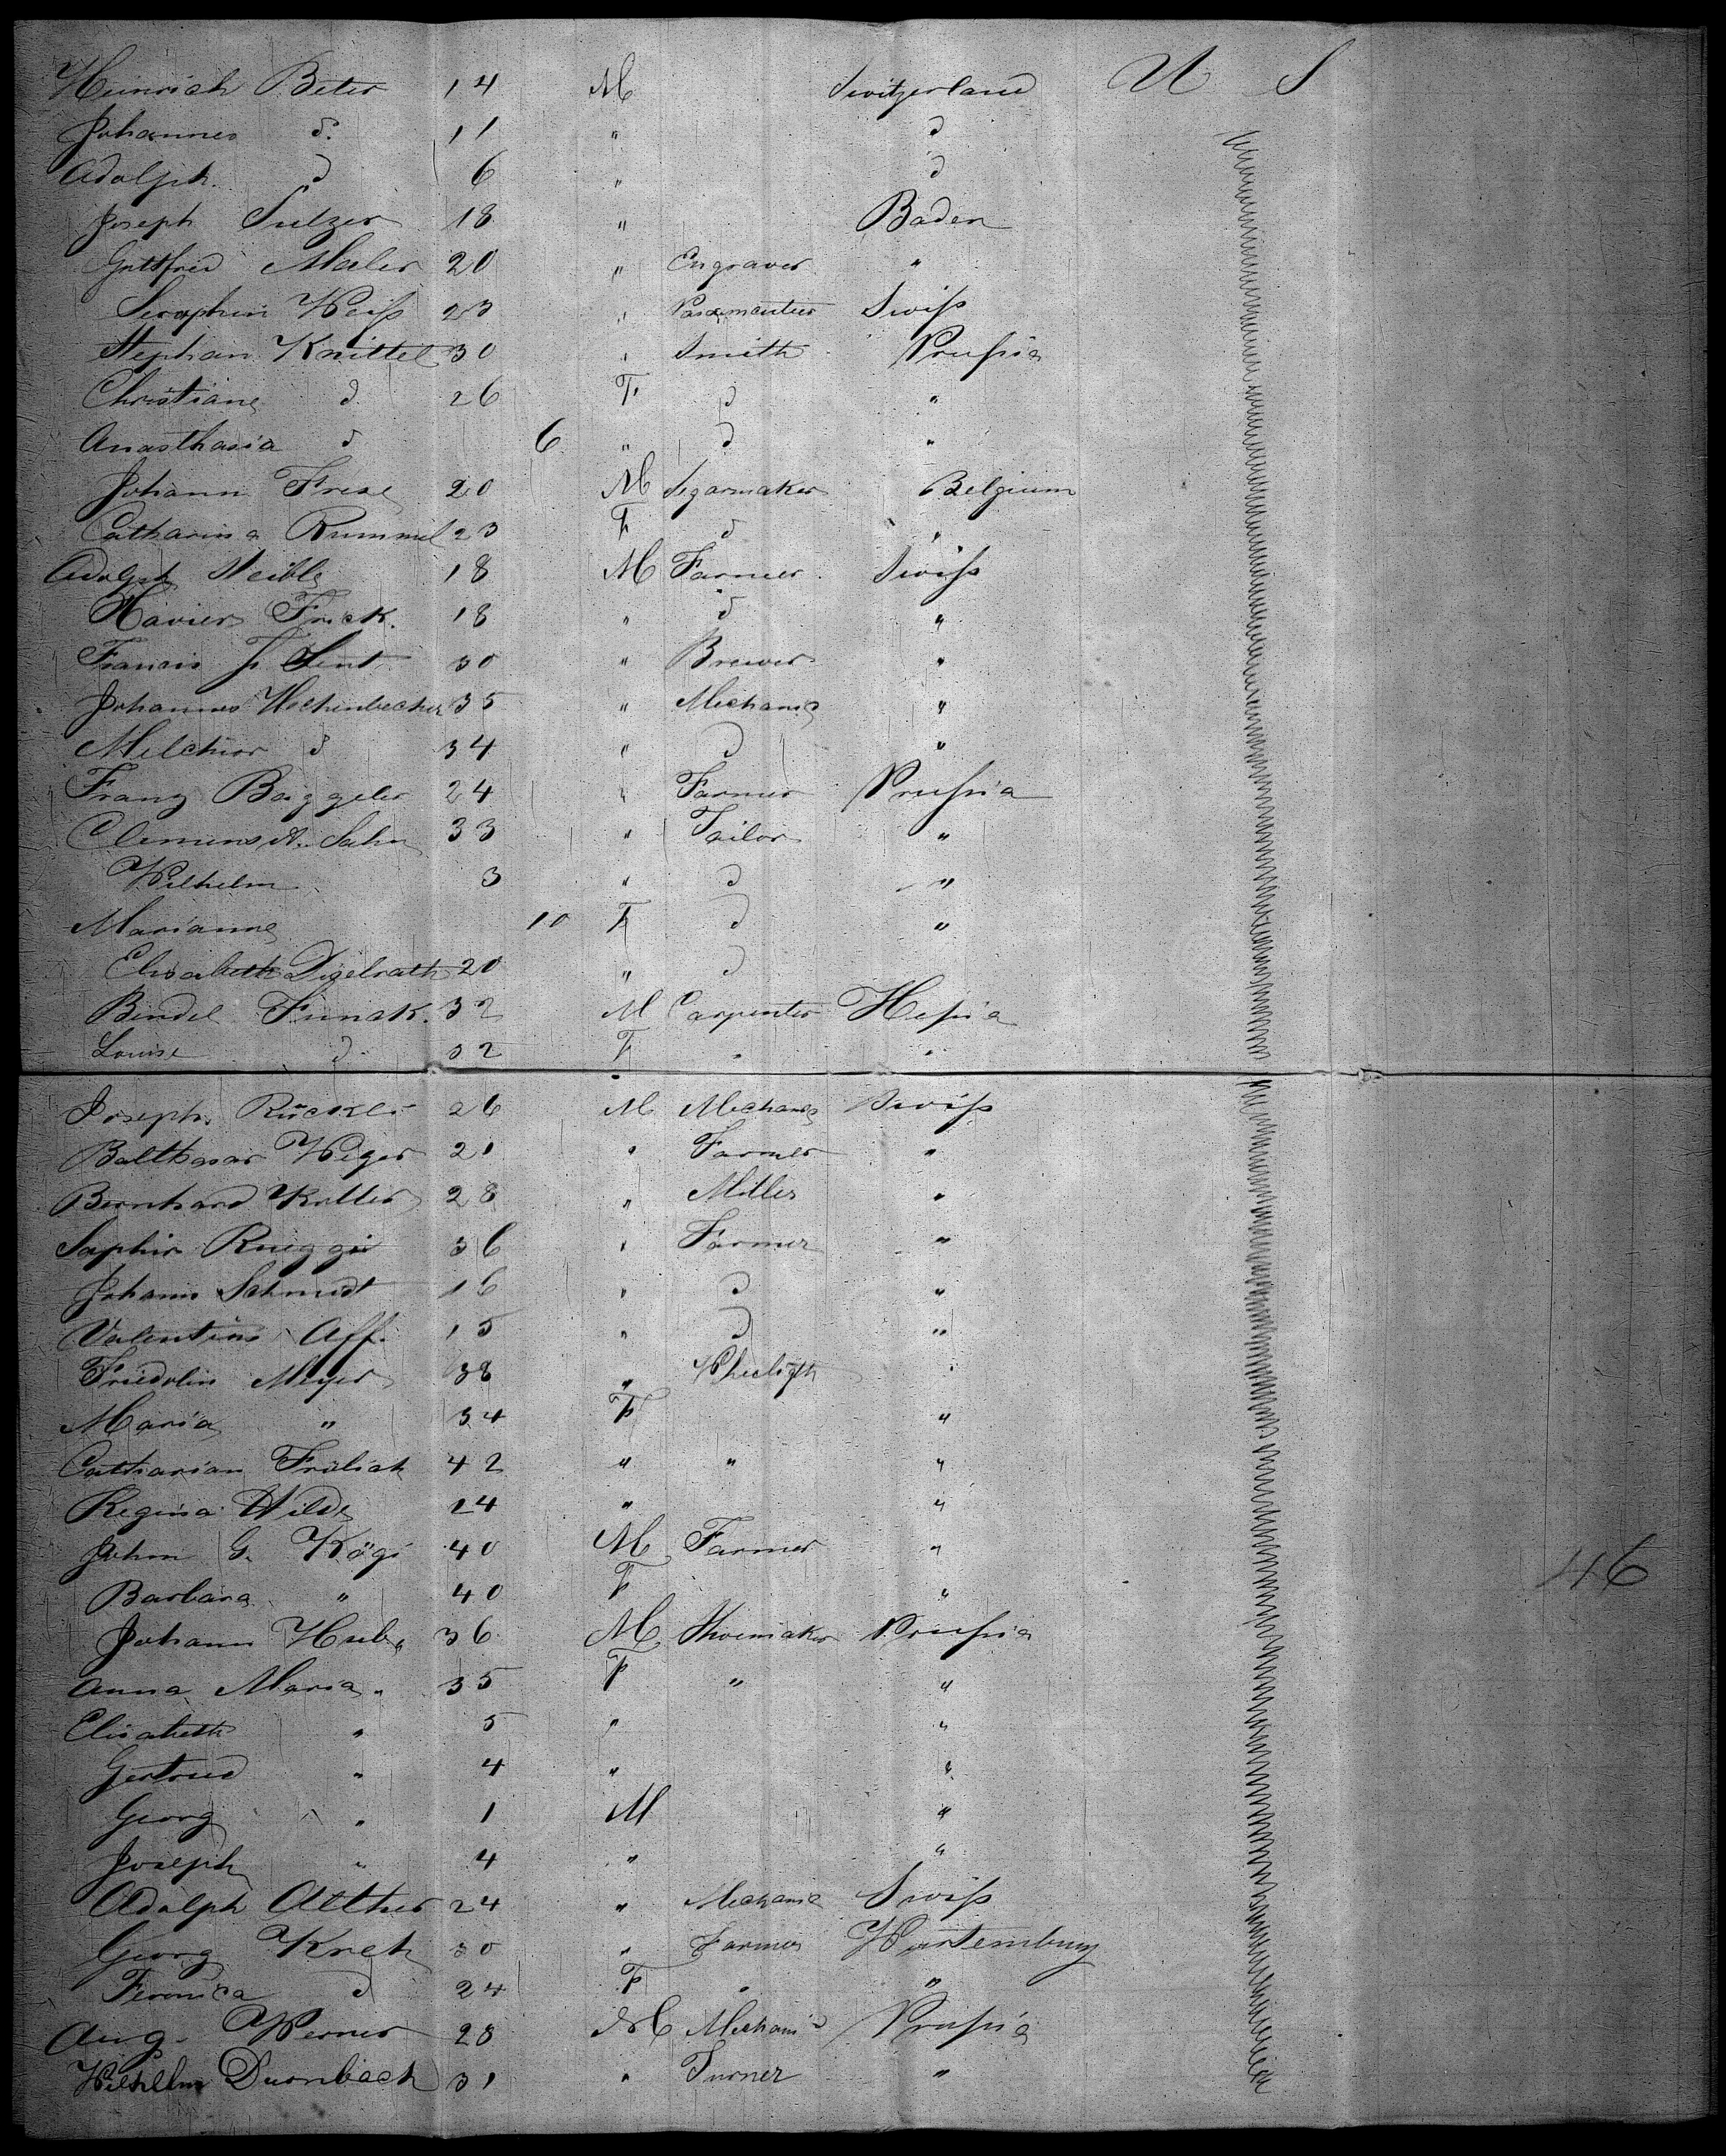 Heinrich Beter 14 M Switzerland U S
Johannes d. 11 " d
Adolph d 6 " d
Joseph Sulzer 18 " Baden
Gottfried Maler 20 " Engraver "
Seraphin Weiß 23 " Pasamentier Swiß
Stephan Knittel 30 " Smith Prußia
Christiane d 26 F d "
Anasthasia d 6 " d "
Johann Frese 20 M Segarmaker Belgium
Catharina Rummel 23 F d "
Adolph Neible 18 M Farmer Swiß
Xavier Frick 18 " d "
Francis J. Sent 30 " Brewer "
Johannes Hechenbecker 35 " Mechanic "
Melchior d 34 " d "
Franz Baggeler 24 " Farmer Prußia
Clemens A. Sahn 33 " Tailor "
Wilhelm 3 " d "
Marianne 10 F d "
Elisabeth Digelrath 20 " d
Bindel Funak 32 M Carpenter Heßia
Louise d 32 F " "
Joseph Rückli 26 M Mechanic Swiß
Balthasar Weger 21 " Farmer "
Bernhard Koller 28 " Miller "
Saphir Rueggi 36 " Farmer "
Johann Schmidt 16 " d "
Valentine Aff. 15 " d "
Friedolin Meyer 38 "
Maria " 34 F "
Catharian Frölich 42 " " "
Regina Wilde 24 " "
John G. Kögi 40 M Farmer " 46
Barbara " 40 F "
Johann Hub 36 M Shoemaker Prußia
Anna Maria " 35 F " "
Elisabeth " 5 " "
Gertrud " 4 " "
Georg " 1 M "
Joseph " 4 " "
Adolph Alther 24 " Mechanic Swiß
Georg Kreh 30 " Farmer Würtemburg
Feronica d 24 F " "
Aug. Werner 28 M Mechanic Prußia
Wilhelm Durnbach 31 " Turner "